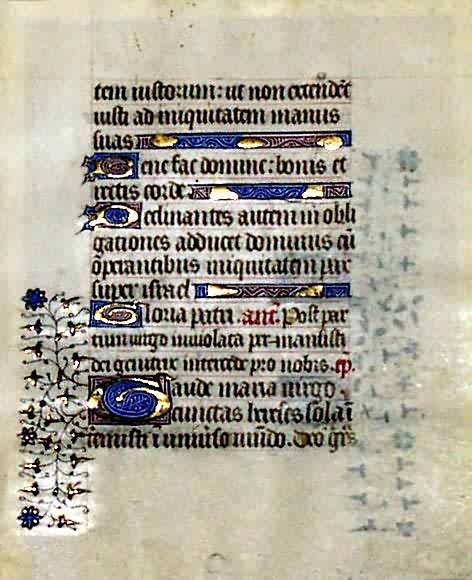 tem iustorum: ut non extendet
iusti ad iniquitatem manus
suas
Bene fac domine: bonis et
rectis corde
Declinantes autem in obli
gationes adducet dominus cũ
opẽrantibus iniquitatem pax
super israel
Gloria patri. añt. Post par
tum uirgo inuiolata per-mansisti
dei genitrix intercede pro nobis. cp.
Gaude maria uirgo
cunctas hereses sola ĩ
teremisti ĩ uniu'so mũdo. Deo grãs